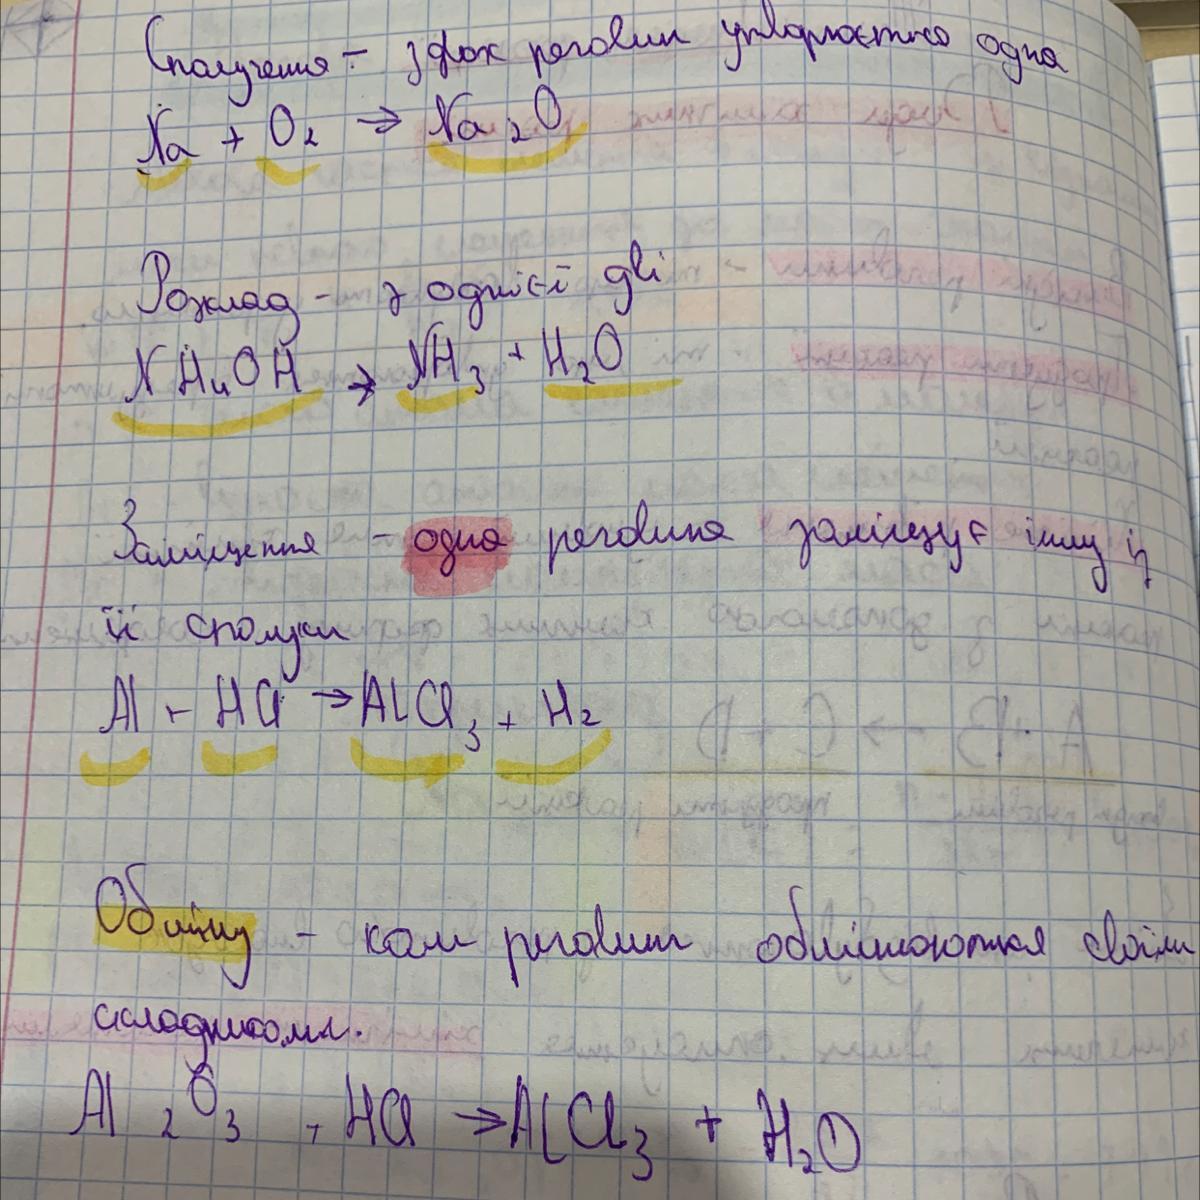 Сполучення - з двох речовин утворюється одна
Na + O2 → Na2O
Розклад - з однієї дві
NH4OH → NH3 + H2O
Заміщення - одна речовина заміщує іншу із
її сполуки
Al + HCl → AlCl3 + H2
Обміну - коли речовини обмінюються своїми
складниками.
Al2O3 + HCl → AlCl3 + H2O